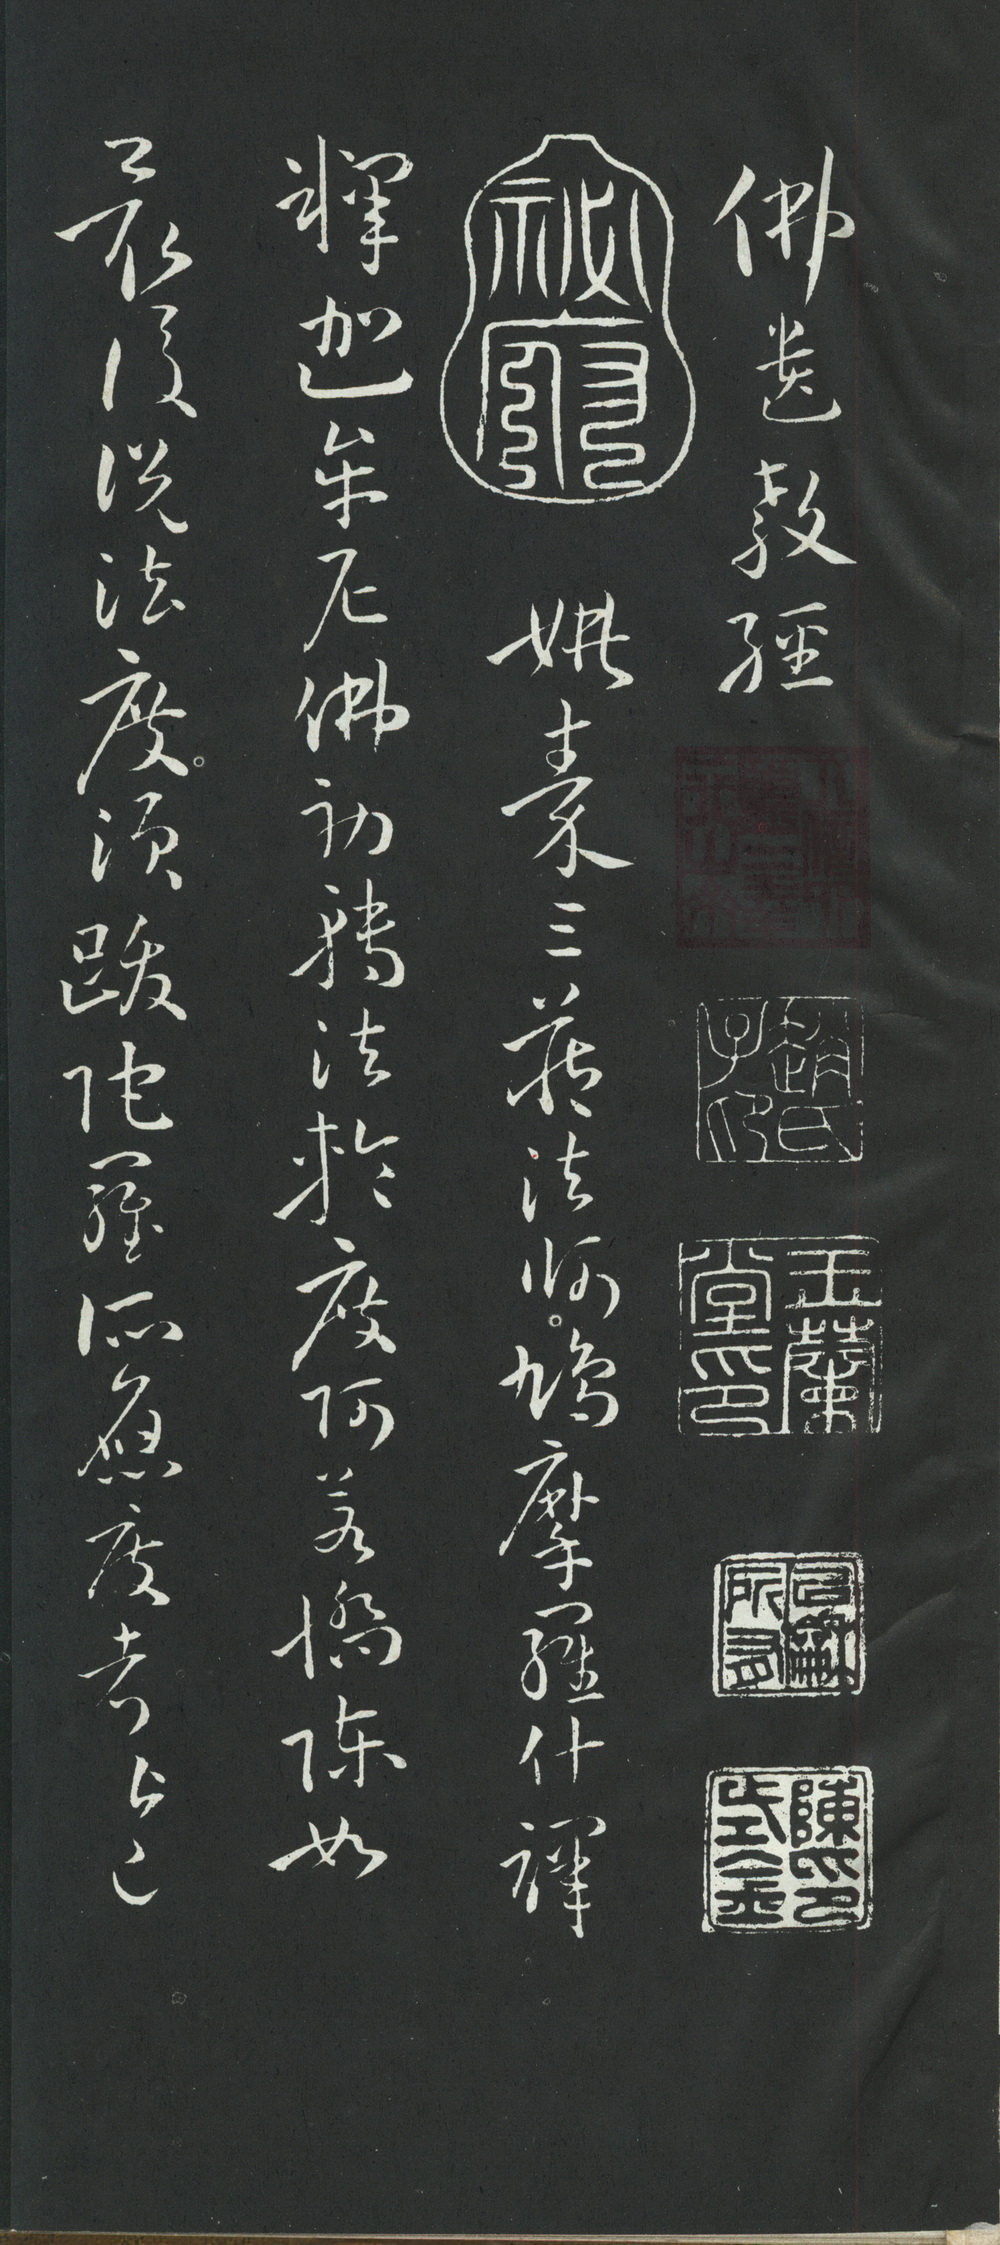 佛遺教經
趙氏子印
玉蘭堂印
陳氏
祕殿
姚秦三藏法師鳩摩羅什譯
釋迦牟尼佛初轉法輪度阿若憍陳如
最後說法度須跋陀羅所應度者皆已